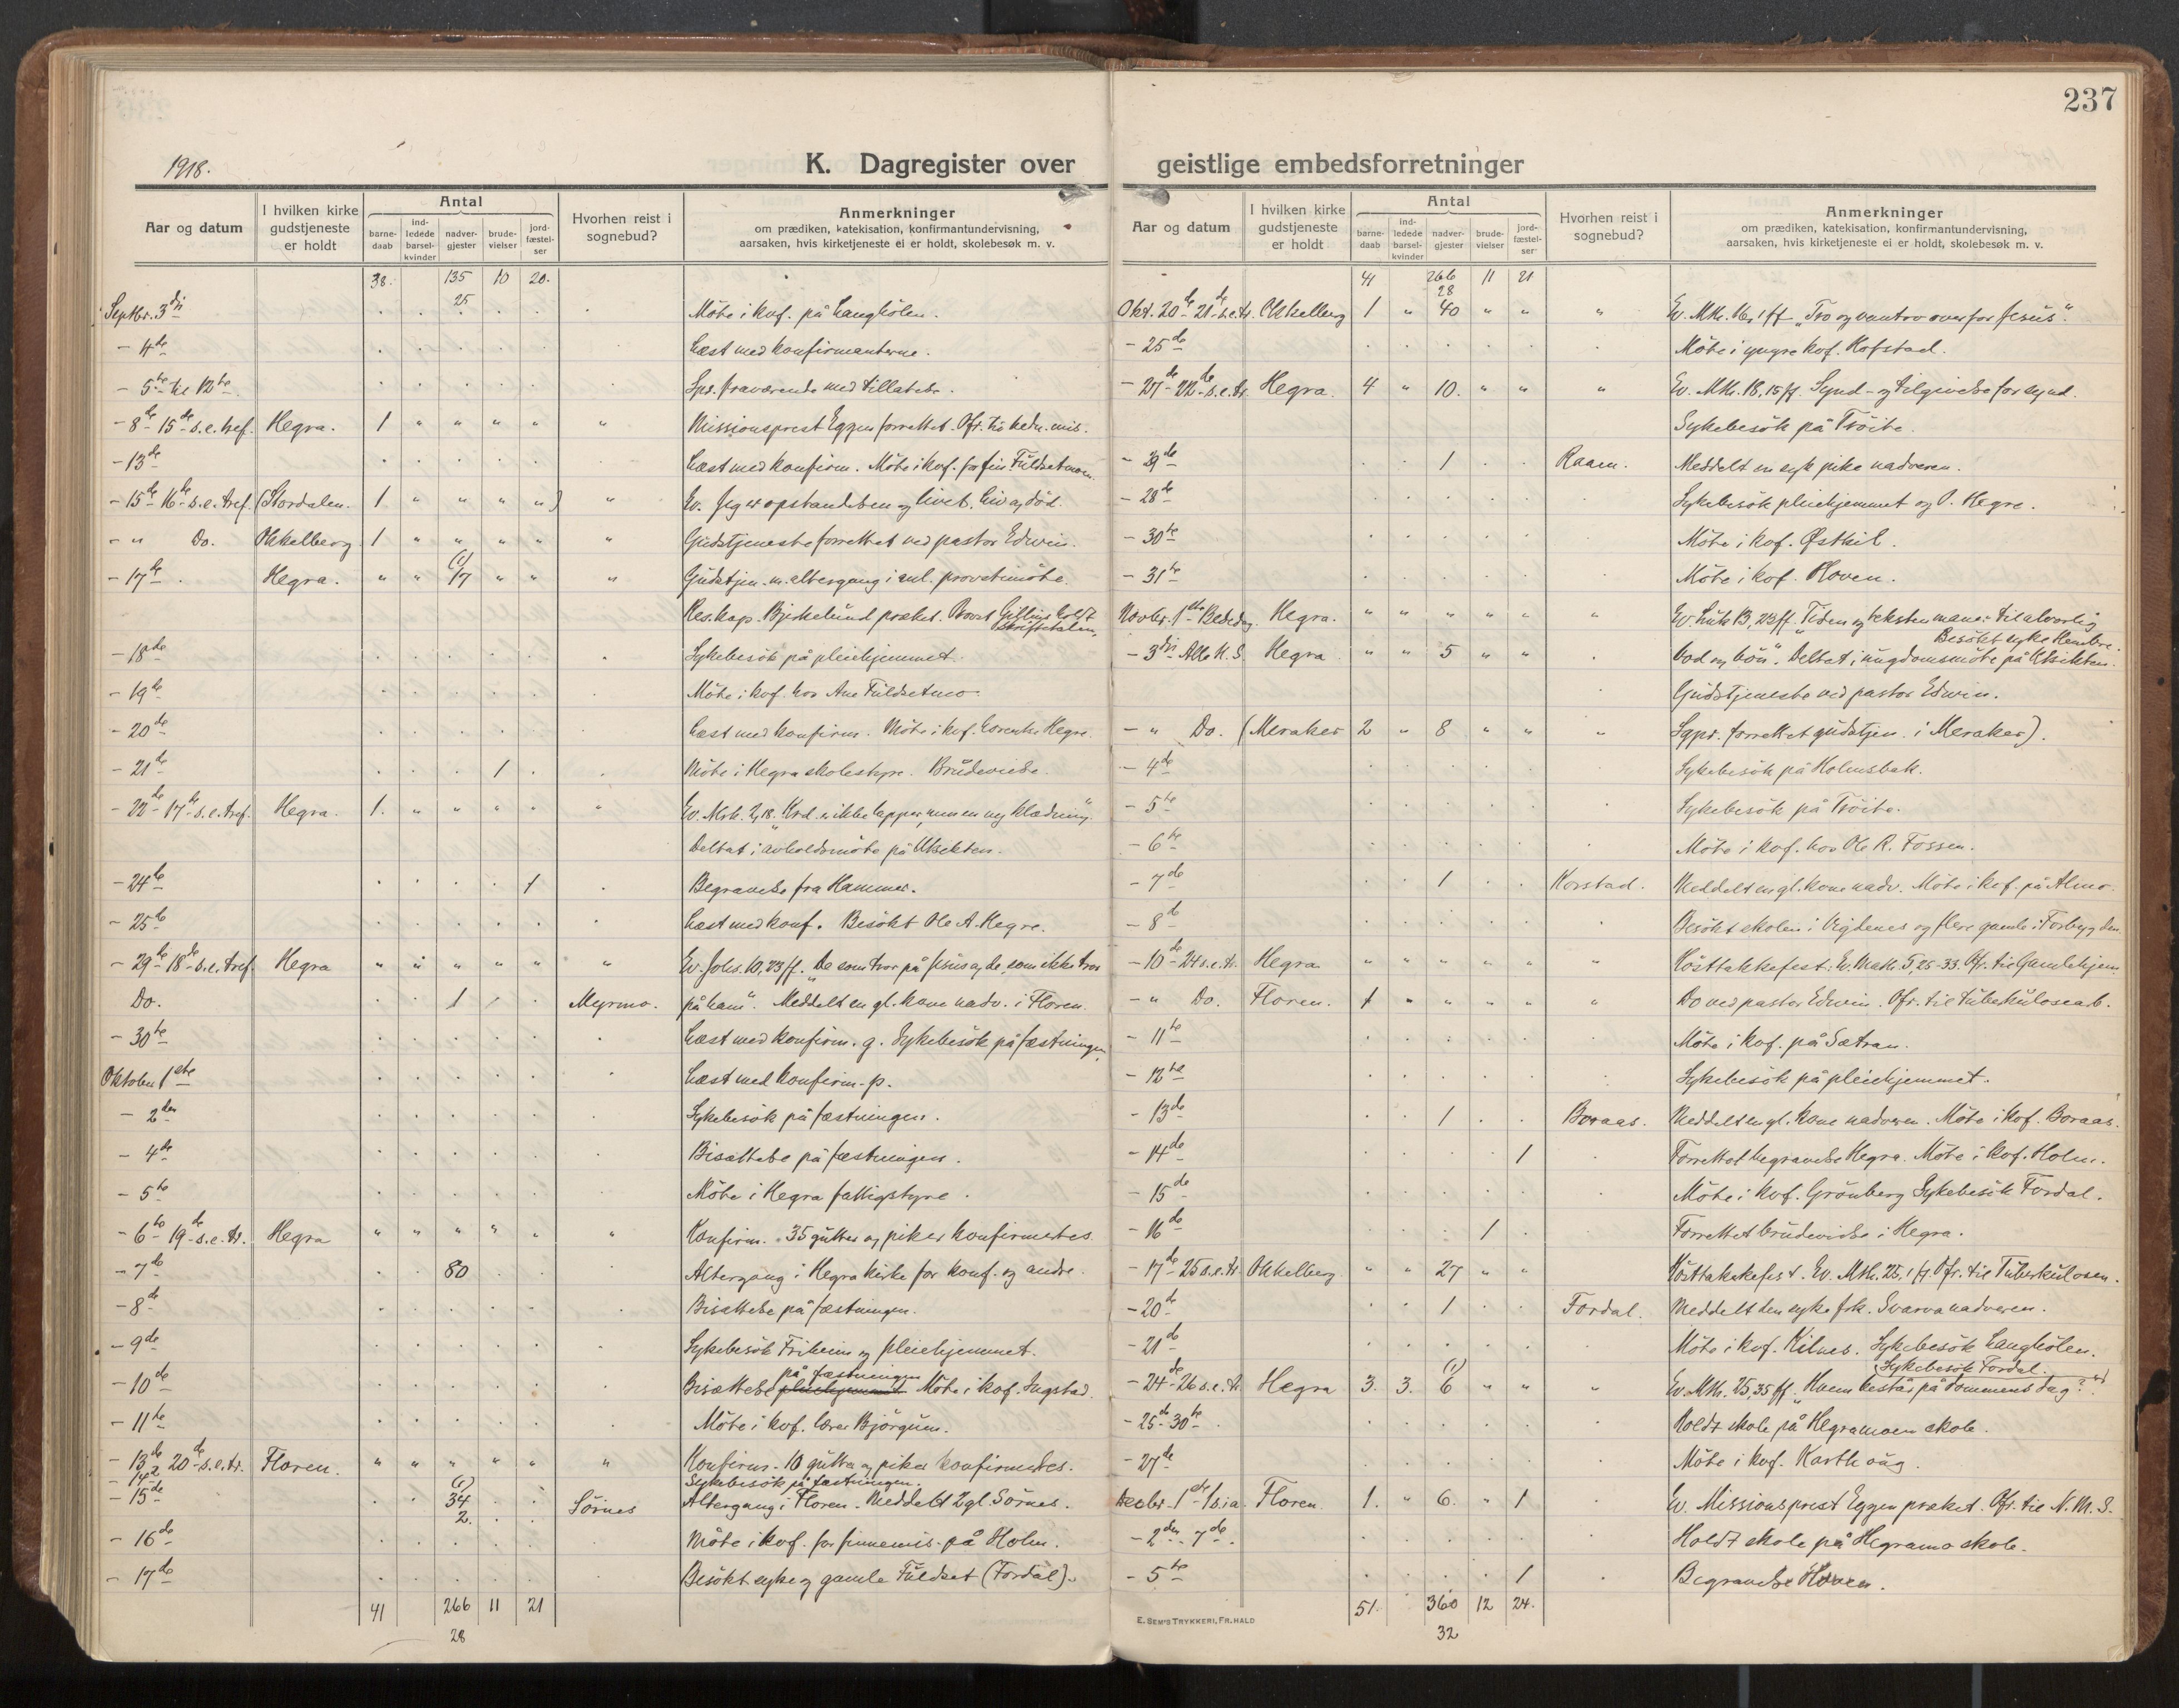 237
1918.
K. Dagregister over geistlige embedsforretninger
Aar og datum
I hvilken kirke gudstjeneste er holdt
Antal
barne-daab
ind-ledede barsel-kvinder
nadver-gjester
brude-vielser
jord-fæstel-ser
Hvorhen reist i sognebud?
Anmerkninger
om prædiken, katekisation, konfirmantundervisning,
aarsaken, hvis kirketjeneste ei er holdt, skolebesøk m. v.
38. 135 10 20.
25
Septbr. 3di Möte i kof. på Langhölen.
- 4de Læst med konfirmanterne.
- 5te til 12te Spr. fraværende med tillatelse.
- 8de 15de s.e.tref. Hegra. 1 " " " " " Missionsprest Eggen forrettet. Ofr. til hedn. mis.
- 13de Læst med konfirm. Möte i kof. for fin. Fuldsetmoen.
- 15de 16de s.e.tref. (Stordalen. 1 " " " ") " Ev. Jeg er opstandelsen og livet. Liv og död.
- " Do. Okkelberg 1 " " " " " Gudstjeneste forrettet ved pastor Edwin.
- 17de Hegra. " " (1) 17 " " " Gudstjen. m. altergang i anl. provstimöte.
Res. kap. Bjerkelund præket. Provst Gilling holdt
skriftetalen.
- 18de Sykebesök på pleiehjemmet.
- 19de Möte i kof. hos Ane Fuldsetmo.
- 20de Læst med konfirm. Möte i kof. Lorentse Hegre.
- 21de 1 Möte i Hegra skolestyre. Brudevielse.
- 22de 17de s.e.tref. Hegra. 1. " " " " " Ev. Mrk. 2,18. "Krd. er ikke lapper, men en ny klædning".
Deltat i avholdsmöte på Utsikten.
- 24de 1 Begravelse fra Hammer.
- 25de Læst med konf. Besökt Ole A. Hegre.
- 29de 18de s.e.tref. Hegra " " " " " " Ev. Johs. 10,23 ff. "De som tror på Jesus og de, som ikke tror
Do. 1 Myrmo. på ham". Meddelt en gl. kone nadv. i Floren.
- 30te Læst med konfirm. g. Sykebesök på fæstningen
Oktober 1ste Læst med konfirm. p.
- 2den Sykebesök på fæstningen.
- 4de Bisættelse på fæstningen.
- 5te Möte i Hegra fattigstyre.
- 6te 19de s.e.tr. Hegra " " " " " " Konfirm. 35 gutter og piker konfirmertes.
- 7de 80 Altergang i Hegra kirke for konf. og andre.
- 8de Bisættelse på fæstningen.
- 9de Sykebesök Friheim og pleiehjemmet.
på fæstningen
- 10de Bisættelse pleiehjemmet Möte i kof. Ingstad.
- 11te Möte i kof. lærer Björgum.
- 13de 20de s.e.tr. Floren. " " " " " " Konfirm. 10 gutter og piker konfirmertes.
- 14de Sykebesök på fæstningen.
- 15de (1) 34 Sörnes Altergang i Floren. Meddelt 2 gl. Sörnes.
2.
- 16de Möte i kof. for finnemis. på Holm.
- 17de Besökt syke og gamle Fuldset (Fordal).
41 266 11 21
28
Aar og datum
I hvilken kirke gudstjeneste er holdt
Antal
barne-daab
ind-ledede barsel-kvinder
nadver-gjester
brude-vielser
jord-fæstel-ser
Hvorhen reist i sognebud?
Anmerkninger
om prædiken, katekisation, konfirmantundervisning,
aarsaken, hvis kirketjeneste ei er holdt, skolebesøk m. v.
41 266 11 21
28
Okt. 20de 21de s.e.tr. Okkelberg 1 " 40 " " " Ev. Mth. 16,1 ff "Tro og vantro overfor Jesus".
- 25de Möte i yngre kof. Hofstad.
- 27de 22de s.e.tr. Hegra. 4 " 10. " " " Ev. Mth. 18,15 ff. Synd- og tilgivelse for synd.
Sykebesök på Tröite.
- 29de 1 Raaen. Meddelt en syk pike nadveren.
- 28de Sykebesök pleiehjemmet og O. Hegre.
- 30te Möte i kof. Østkil.
- 31te Möte i kof. Hoven.
Novbr. 1ste Bededag. Hegra. " " " " " " Ev. Luk 13, 23 ff. "Tiden og teksten maner til alvorlig
Besökt syke Hembre.
- 3die Alle H. S. Hegra " " 5 " " bod og bön". Deltat i ungdomsmöte på Utsikten.
Gudstjeneste ved pastor Edwin.
- " Do. (Meraker 2 " 8 " " " Sgpr. forrettet gudstjen. i Meraker).
- 4de Sykebesök på Holmsbak.
- 5te Sykebesök på Tröite.
- 6te Möte i kof. hos Ole R. Fossen.
- 7de 1 Korstad. Meddelt en gl. kone nadv. Möte i kof. på Almo.
- 8de Besökt skolen i Vigdenes og flere gamle i Forbygden.
- 10de 24 s.e.tr. Hegra " " " " " " Hösttakkefest: Ev. Math. 5,25-33. Ofr. til Gamlehjem
- " Do. Floren. 1 " " " " " Do ved pastor Edwin. Ofr. til tuberkulosearb.
- 11te Möte i kof. på Sætran.
- 12te Sykebesök på pleiehjemmet.
- 13de 1 Boraas. Meddelt en gl. kone nadveren. Möte i kof. Boraas.
- 14de 1 Forrettet begravelse Hegra. Möte i kof. Holm.
- 15de Möte i kof. Grönberg Sykebesök Fordal.
- 16de 1 Forrettet brudevielse i Hegra.
- 17de 25 s.e.tr. Okkelberg " " 27 " " Hösttakkefest. Ev. Mth. 25,1 ff. Ofr. til Tuberkulosen.
- 20de 1 Fordal. Meddelt den syke frk. Svarva nadveren.
- 21de Möte i kof. Kilnes. Sykebesök Langhölen.
Sykebesök Fordal.
- 24de 26 s.e.tr. Hegra 3. 3. (1) 6 " " " Ev. Mth. 25,35 ff. "Hvem består på dommens dag?"
- 25de 30te Holdt skole på Hegramoen skole.
- 27de Möte i kof. Karthaug.
Decbr. 1ste 1 s. i a. Floren. 1. " 6. " 1 Ev. Missionsprest Eggen præket. Ofr. til N. M. S.
- 2den 7de. Holdt skole på Hegramo skole.
- 5te 1 Begravelse Hoven.
51. 360 12 24.
32
E. SEM'S TRYKKERI, FR.HALD